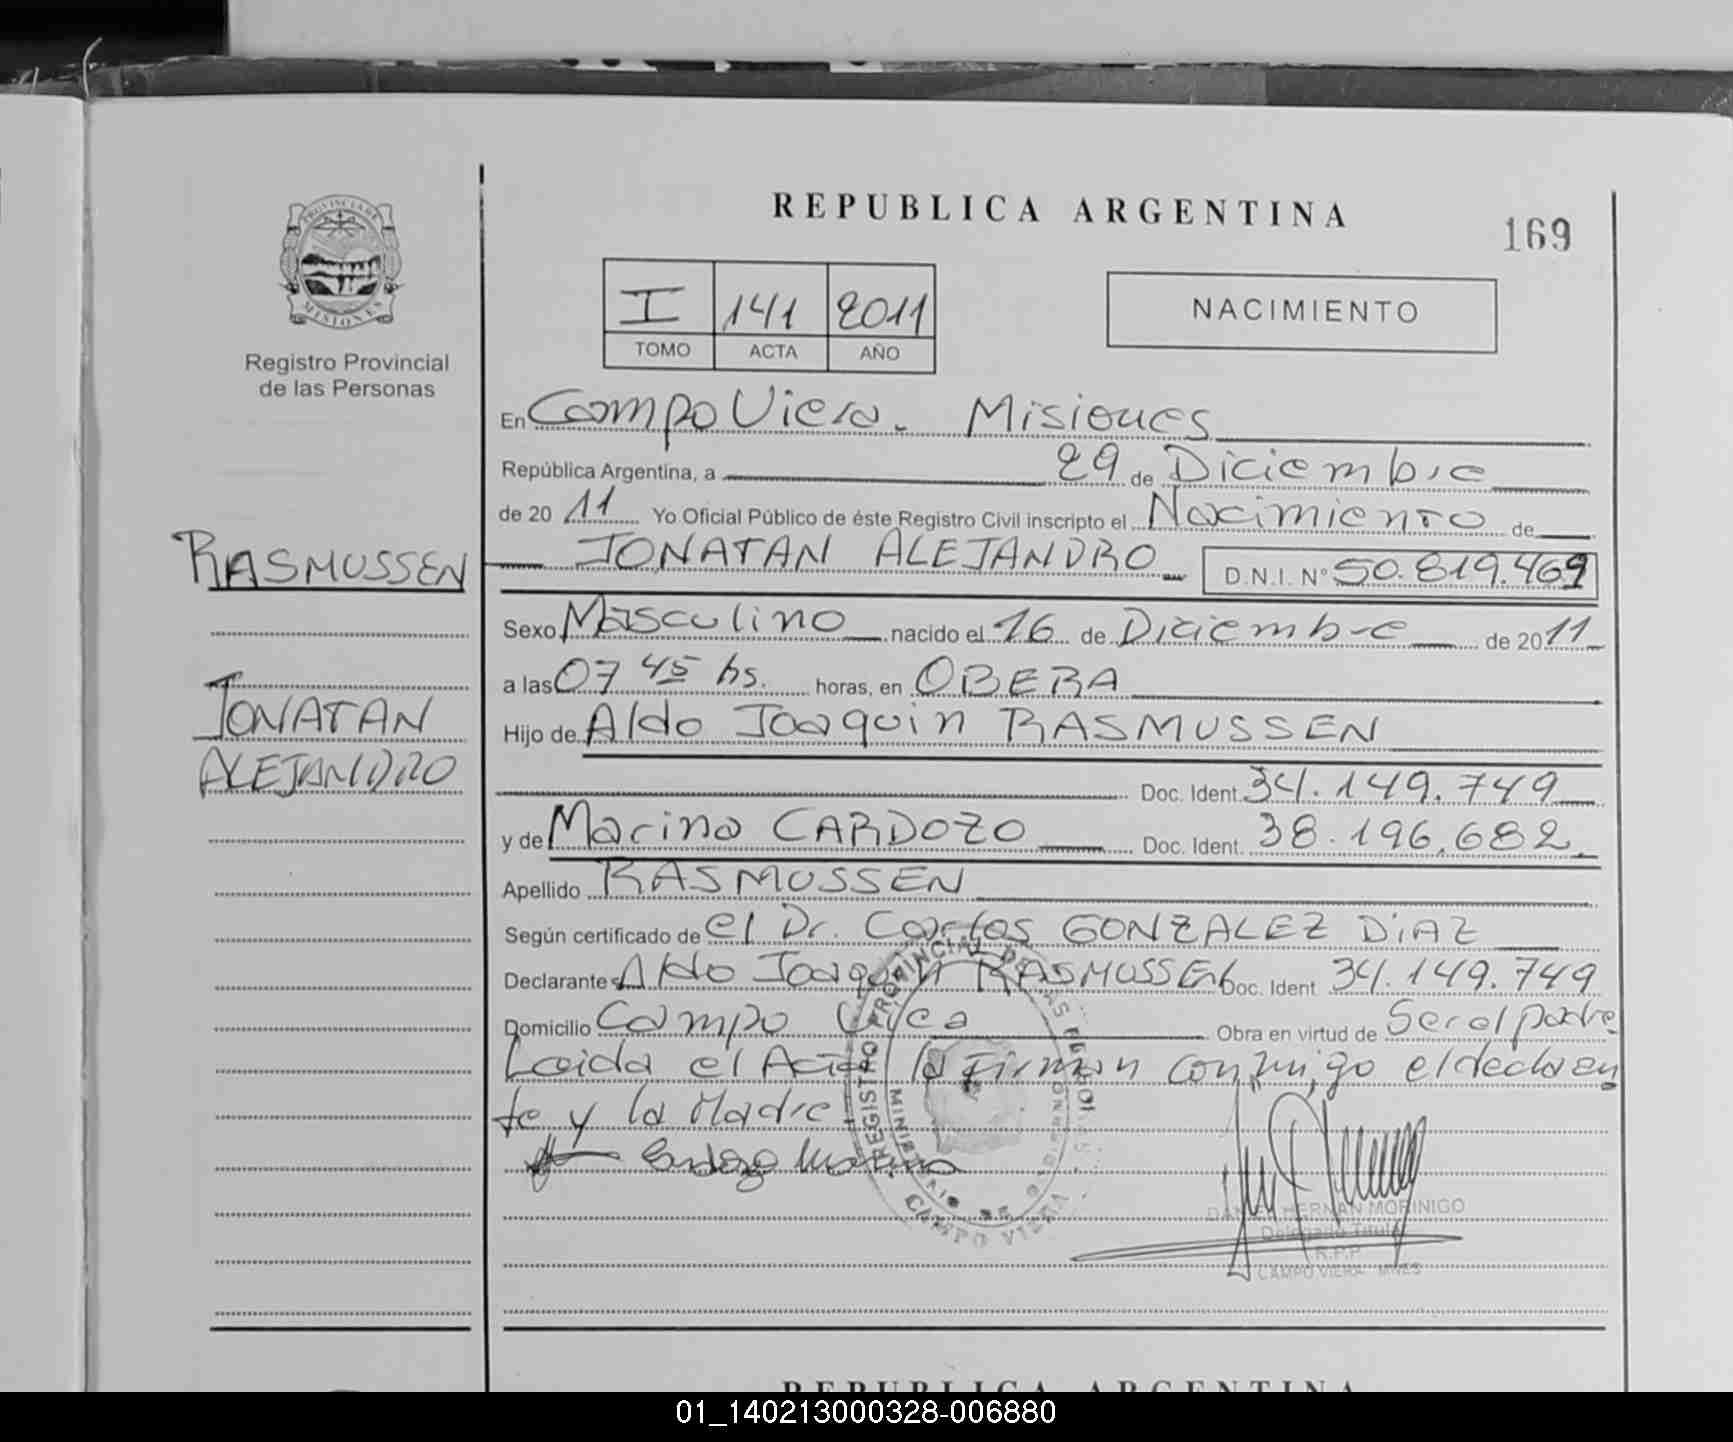 REPUBLICA ARGENTINA
169
PROVINCIA DE
MISIONES
Registro Provincial
de las Personas
I 141 2011
TOMO ACTA AÑO
NACIMIENTO
En Campo Viera. Misiones
República Argentina, a 29 de Diciembre
de 20 11 Yo Oficial Público de éste Registro Civil inscripto el Nacimiento de
RASMUSSEN
JONATAN ALEJANDRO D.N.I. Nº 50.819.469
Sexo Masculino nacido el 16 de Diciembre de 2011
a las 07 45 hs. horas, en OBERA
JONATAN
ALEJANDRO
Hijo de Aldo Joaquin RASMUSSEN
Doc. Ident. 34.149.749
y de Marina CARDOZO Doc. Ident. 38.196.682
Apellido RASMUSSEN
Según certificado de el Dr. Carlos GONZALEZ DiAZ
Declarante Aldo Joaquin RASMUSSEN Doc. Ident 34.149.749
Domicilio Campo Viera Obra en virtud de Ser el padre
Leida el Acta la Firman conmigo el declaran
te y la Madre
Cardozo Marina
REGISTRO PROVINCIAL DE LAS
MINISTERIO DE
CAMPO VIERA
DANIEL HERNAN MORINIGO
Delegado Titular
R.P.P
CAMPO VIERA MNES
REPUBLICA ARGENTINA
01_140213000328-006880